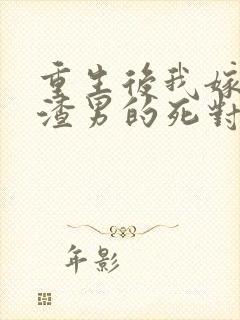 重生後我嫁
渣男的死對
年影